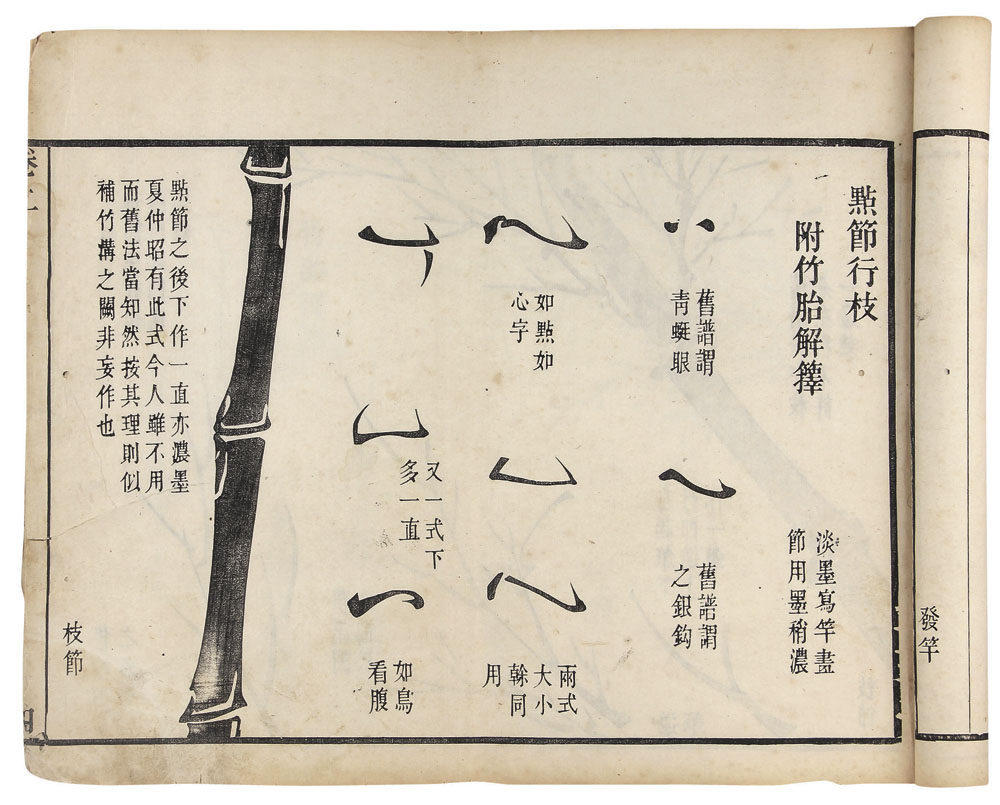 發竿
點節行枝
附竹胎解籜
淡墨寫竿畫
節用墨稍濃
舊譜謂
靑蜓眼
舊譜謂
之銀鈎
如點如
心字
兩式
大小
榦同
用
又一式下
多一直
如鳥
看腹
點節之後下作一直亦濃墨
夏仲昭有此式今人雖不用
而舊法當知然按其理則似
補竹溝之闕非妄作也
枝節